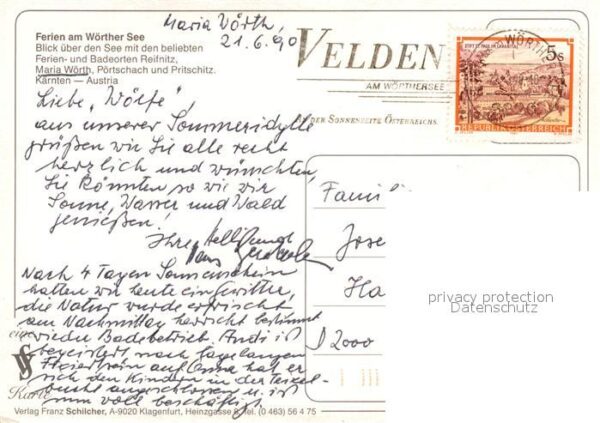 Maria Wörth,
21.6.90
Ferien am Wörther See
Blick über den See mit den beliebten
Ferien- und Badeorten Reifnitz,
Maria Wörth, Pörtschach und Pritschitz.
Kärnten — Austria
VELDEN
AM WÖRTHERSEE
AN DER SONNENSEITE ÖSTERREICHS
5s
REPUBLIK ÖSTERREICH
Liebe „Wölfe“,
aus unserer Sommeridylle
grüßen wir Sie alle recht
herzlich und wünschten,
Sie könnten so wie wir
Sonne, Wasser und Wald
genießen!
Ihre
Nach 4 Tagen Sonnenschein
hatten wir heute ein Gewitter,
die Natur wurde erfrischt
am Nachmittag herrscht bestimmt
wieder Badebetrieb. Andi ist
begeistert, nach tagelangen
auf Oma hat er
sich den Kindern in der
angeschlossen u. ist
nun voll beschäftigt.
Famili
Jose
Ha
D 2000
privacy protection
Datenschutz
eine
Karte
Verlag Franz Schilcher, A-9020 Klagenfurt, Heinzgasse 6, Tel. (0 463) 56 4 75